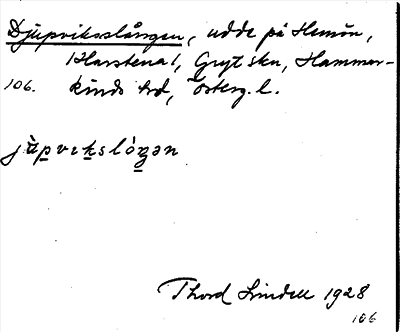 Djupviksslången, udde på Hemön,
Harstena 1, Gryt skn, Hammar-
106. kinds hd, Österg. l.
jùpvikslóŋən
Thord Lindell 1928
106